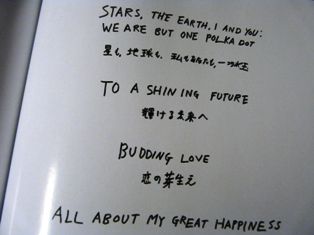 STARS, THE EARTH, I AND YOU:
WE ARE BUT ONE POLKA DOT
星も、地球も、私もあなたも、一つの水玉
TO A SHINING FUTURE
輝ける未来へ
BUDDING LOVE
恋の芽生え
ALL ABOUT MY GREAT HAPPINESS